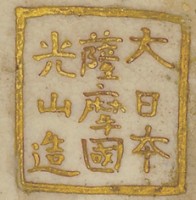 大日本
薩摩國
光山造